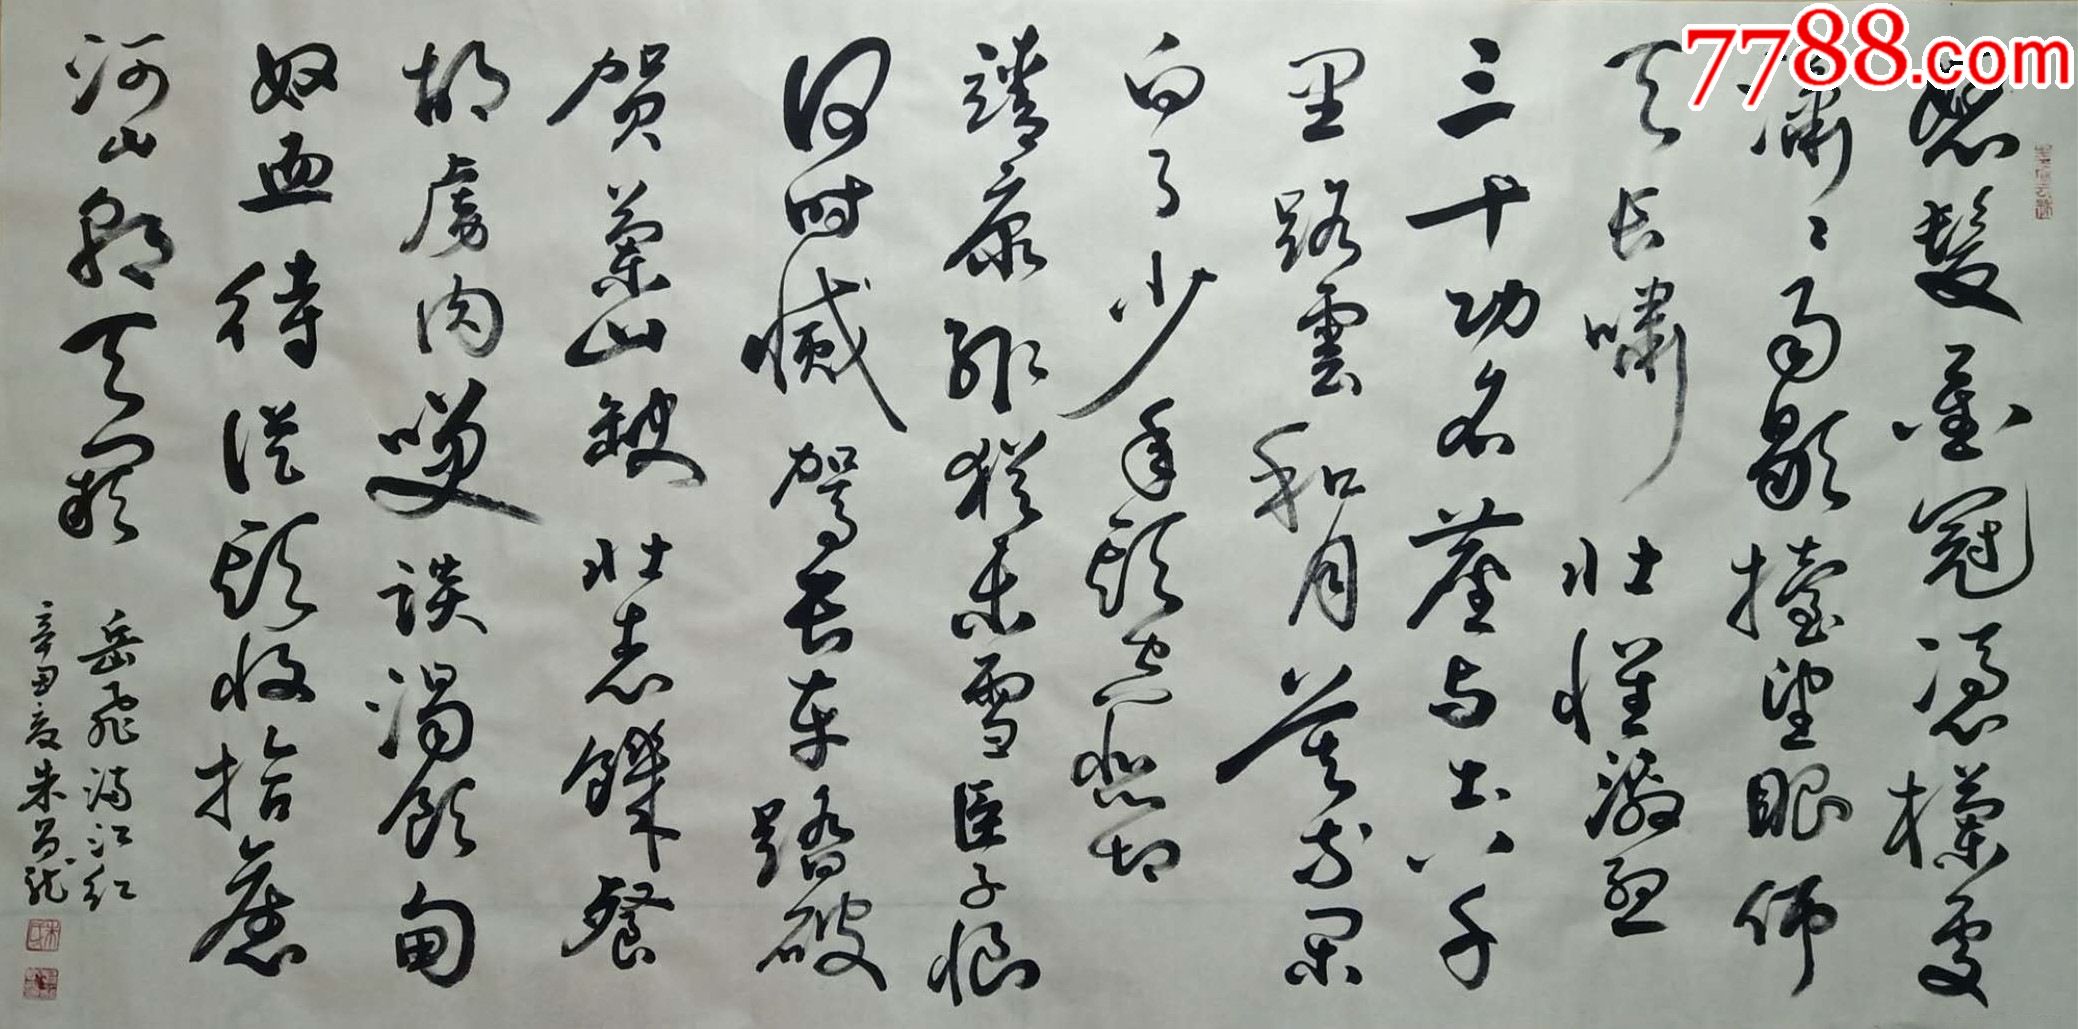 怒髮衝冠憑欄處
瀟瀟雨歇擡望眼仰
天長嘯壯懷激烈
三十功名塵与土八千
里路雲和月莫等閑
白了少年頭空悲切
靖康恥猶未雪臣子恨
何时憾駕長車踏破
贺蘭山缺壯志饑餐
胡虜肉咲談渴飲匈
奴血待從頭收拾舊
河山朝天闕
岳飛滿江红
辛丑夏朱昌龙
7788.com